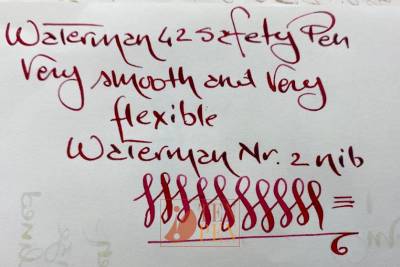 Waterman 42 Safety Pen
Very smooth and Very
flexible
Waterman Nr. 2 nib